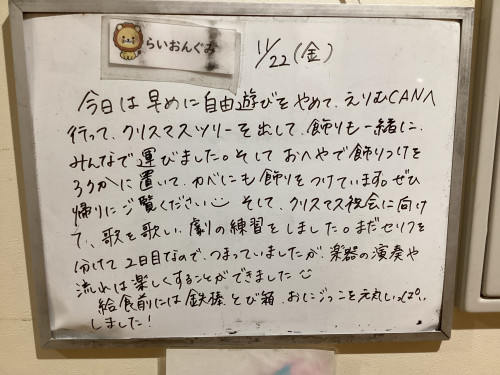 らいおんぐみ
11/22(金)
今日は早めに自由遊びをやめて、えりむCANへ
行って、クリスマスツリーを出して、飾りも一緒に
みんなで運びました。そして おへやで飾りつけを
ろうかに置いて、カベにも飾りをつけています。ぜひ
帰りにご覧ください そして、クリスマス祝会に向け
て、歌を歌い、劇の練習をしました。まだセリフを
分けて2日目なので、つまっていましたが、楽器の演奏や
流れは楽しくすることができました
給食前には鉄棒、とび箱、おにごっこを元気いっぱい
しました!